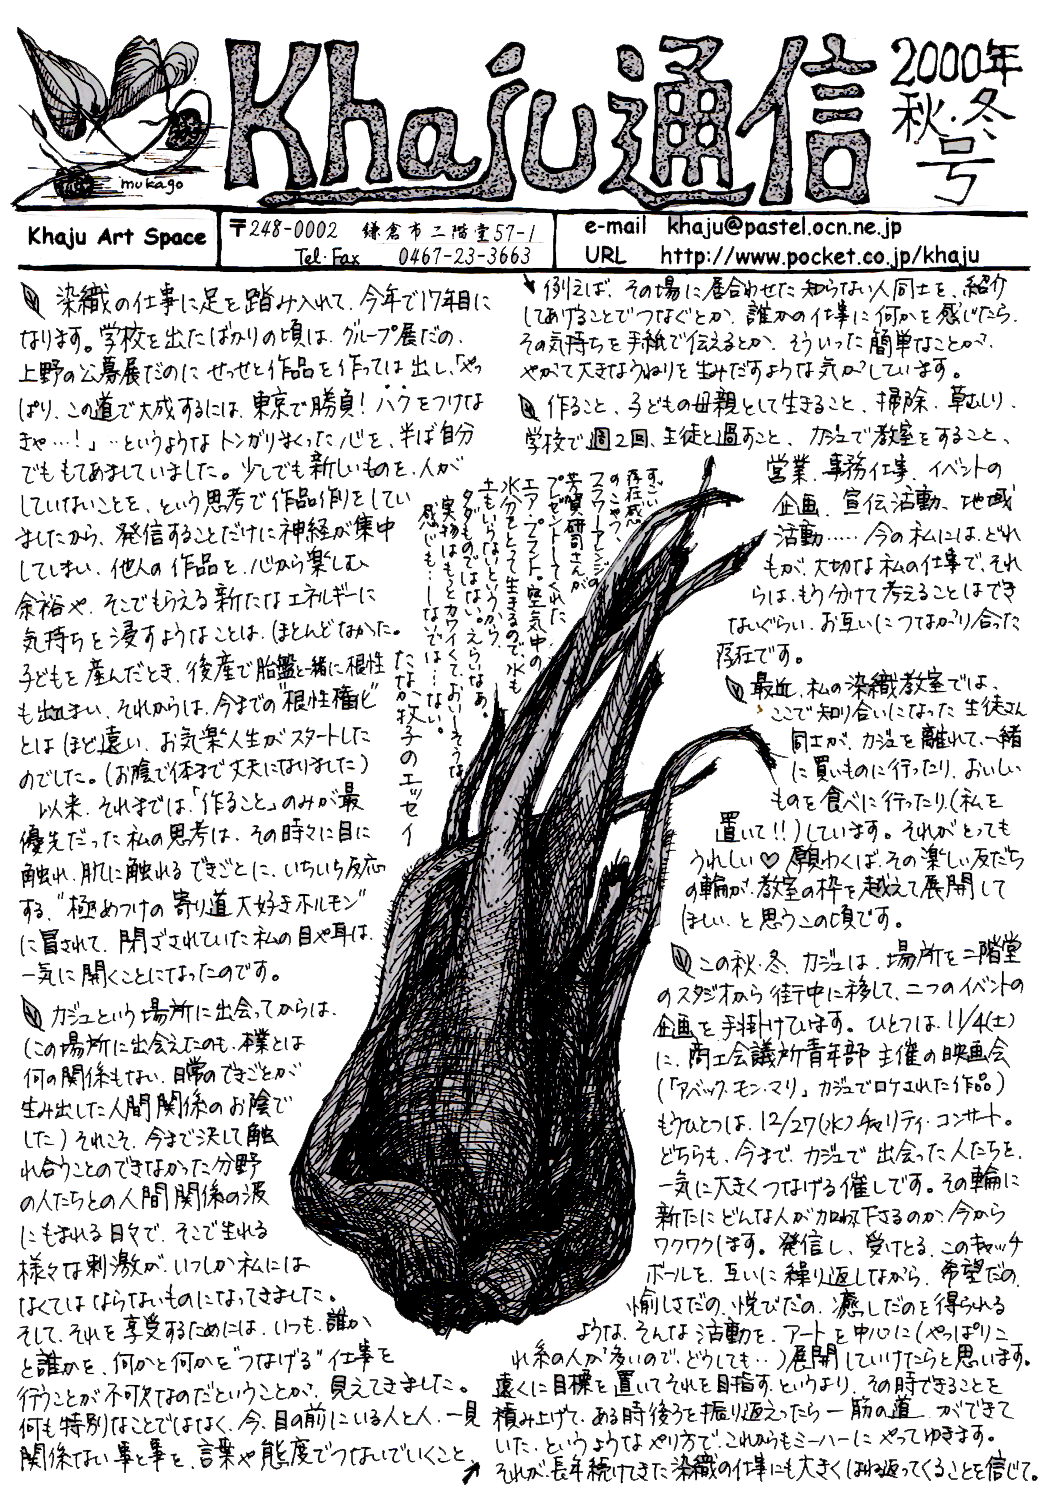 Khaju通信
2000年
秋・冬
号
mukago
Khaju Art Space
〒248-0002 鎌倉市二階堂57-1
Tel・Fax 0467-23-3663
e-mail khaju@pastel.ocn.ne.jp
URL http://www.pocket.co.jp/khaju
染織の仕事に足を踏み入れて、今年で17年目に
なります。学校を出たばかりの頃は、グループ展だの、
上野の公募展だのに せっせと作品を作っては出し、「やっ
ぱり、この道で大成するには、東京で勝負！ハクをつけな
きゃ…！」…というような トンガリまくった心を、半ば自分
でももてあましていました。少しでも新しいものを、人が
していないことを、という思考で作品創りをしてい
ましたから、発信することだけに神経が集中
してしまい、他人の作品を、心から楽しむ
余裕や、そこでもらえる新たなエネルギーに
気持ちを浸すようなことは、ほとんどなかった。
子どもを産んだとき、後産で胎盤と一緒に根性
も出てしまい、それからは、今までの“根性権化”
とはほど遠い、お気楽人生がスタートした
のでした。（お陰で体まで丈夫になりました）
以来、それまでは、「作ること」のみが最
優先だった私の思考は、その時々に目に
触れ、肌に触れるできごとに、いちいち反応
する、“極めつけの寄り道大好きホルモン”
に冒されて、閉ざされていた私の目や耳は、
一気に開くことになったのです。
カジュという場所に出会ってからは、
（この場所に出会えたのも、本業とは
何の関係もない、日常のできごとが
生み出した人間関係のお陰で
した）それこそ、今まで決して触
れ合うことのできなかった分野
の人たちとの人間関係の渦
にもまれる日々で、そこで生れる
様々な刺激が、いつしか私には
なくてはならないものになってきました。
そして、それを享受するためには、いつも、誰か
と誰かを、何かと何かを“つなげる”仕事を
行うことが不可欠なのだということが、見えてきました。
何も特別なことではなく、今、目の前にいる人と人、一見
関係ない事と事を、言葉や態度でつないでいくこと、
例えば、その場に居合わせた知らない人同士を、紹介
してあげることでつなぐとか、誰かの仕事に何かを感じたら、
その気持ちを手紙で伝えるとか、そういった簡単なことが、
やがて大きなうねりを生みだすような気がしています。
作ること、子どもの母親として生きること、掃除、草むしり、
学校で週2回、生徒と過すこと、カジュで教室をすること、
営業、事務仕事、イベントの
企画、宣伝活動、地域
活動……今の私には、どれ
もが、大切な私の仕事で、それ
らは、もう分けて考えることはでき
ないぐらい、お互いにつながり合った
存在です。
最近、私の染織教室では、
ここで知り合いになった生徒さん
同士が、カジュを離れて、一緒
に買いものに行ったり、おいしい
ものを食べに行ったり、（私を
置いて!!）しています。それがとっても
うれしい♡ 願わくば、その楽しい友だち
の輪が、教室の枠を越えて展開して
ほしい、と思うこの頃です。
この秋・冬、カジュは、場所を二階堂
のスタジオから街中に移して、二つのイベントの
企画を手掛けています。ひとつは、11/4(土)
に、商工会議所青年部主催の映画会
（「アベック・モン・マリ」カジュでロケされた作品）
もうひとつは、12/27(水)チャリティ・コンサート。
どちらも、今まで、カジュで出会った人たちを、
一気に大きくつなげる催しです。その輪に
新たにどんな人が加わって下さるのか、今から
ワクワクします。発信し、受けとる、このキャッチ
ボールを、互いに繰り返しながら、希望だの、
愉しさだの、悦びだの、癒しだのを得られる
ような、そんな活動を、アートを中心に（やっぱりこ
れ系の人が多いので、どうしても…）展開していけたらと思います。
遠くに目標を置いてそれを目指す、というより、その時できることを
積み上げて、ある時後ろを振り返えったら一筋の道、ができて
いた、というようなやり方で、これからもミーハーにやってゆきます。
それが、長年続けてきた染織の仕事にも大きくはね返ってくることを信じて。
すごい
存在感
のこやつ、
フラワーアレンジの
芳賀研司さんが
プレゼントしてくれた
エア・プランツ。空気中の
水分をとって生きるので、水も
土もいらないというから、
タダものではない。えらいなぁ。
実物はもっとカワイくて、おいしそうな
感じも…しないでは…ない。
たなか牧子のエッセイ